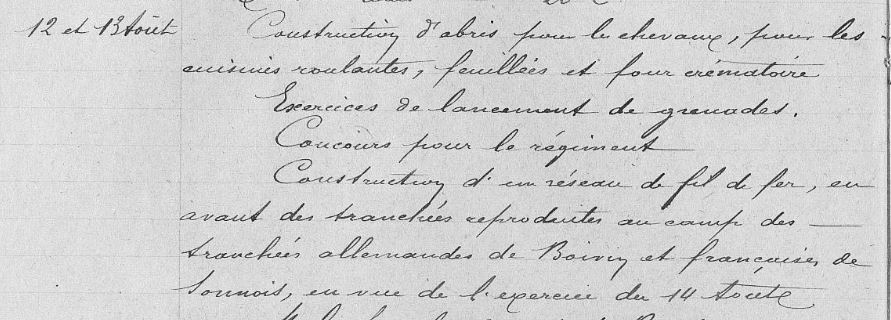 12 et 13 Août Construction d'abris pour les chevaux, pour les
cuisines roulantes, feuillées et four crématoire
Exercices de lancement de grenades.
Concours pour le régiment
Construction d'un réseau de fil de fer, en
avant des tranchées reproduites au camp des
tranchées allemandes de et françaises de
en vue de l'exercice du 14 Août